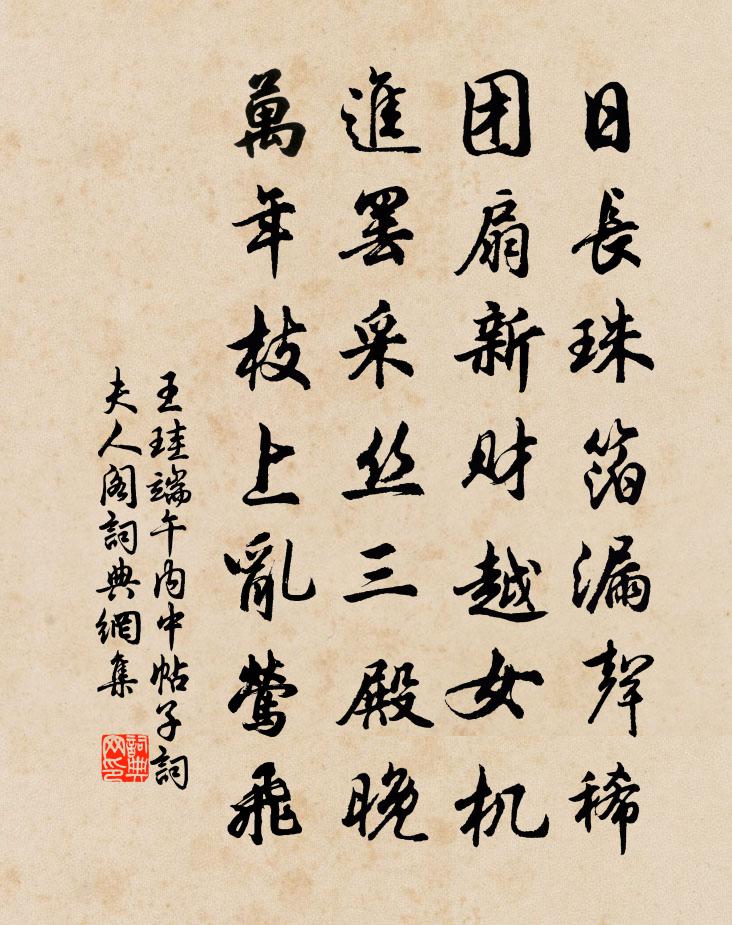 日長珠箔漏聲稀
团扇新财越女机
進罢采丝三殿晚
萬年枝上亂鶯飛
王珪端午内中帖子詞
夫人阁詞典網集
詞典
网印